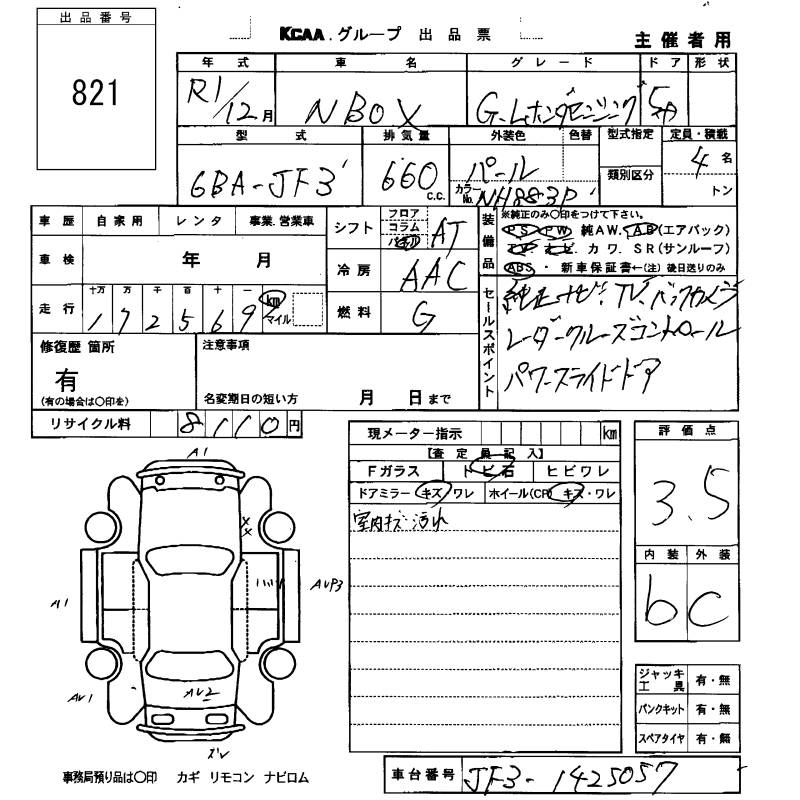 出品番号
821
KCAA.グループ 出品票
主催者用
年式 車名 グレード ドア 形状
R1/12月 NBOX G.Lホンダセンシング 5
型式 排気量 外装色 色替 型式指定 定員・積載
6BA-JF3 660 c.c. パール 類別区分 4名
カラーNo. NH883P トン
車歴 自家用 レンタ 事業.営業車
シフト フロア コラム パネル AT
装備品 ※純正のみ〇印をつけて下さい。
PS PW 純AW. A.B(エアバック)
TV. ナビ. カワ. SR(サンルーフ)
ABS ・ 新車保証書←(注) 後日送りのみ
車検 年 月
冷房 AAC
走行 十万 万 千 百 十 一 km マイル
172569
燃料 G
セールスポイント
純正ナビ・TV・バックカメラ
レーダークルーズコントロール
パワースライドドア
修復歴 箇所
有
(有の場合は〇印を)
注意事項
名変期日の短い方 月 日まで
リサイクル料 8110円
現メーター指示 km
【査定員記入】
Fガラス トビ石 ヒビワレ
ドアミラー キズ・ワレ ホイール(CP) キズ・ワレ
室内キズ・汚れ
評価点
3.5
内装 外装
b C
A1
A1
AVP3
AV1
AV2
ズレ
ジャッキ工具 有・無
パンクキット 有・無
スペアタイヤ 有・無
事務局預り品は〇印 カギ リモコン ナビロム
車台番号 JF3-1425057